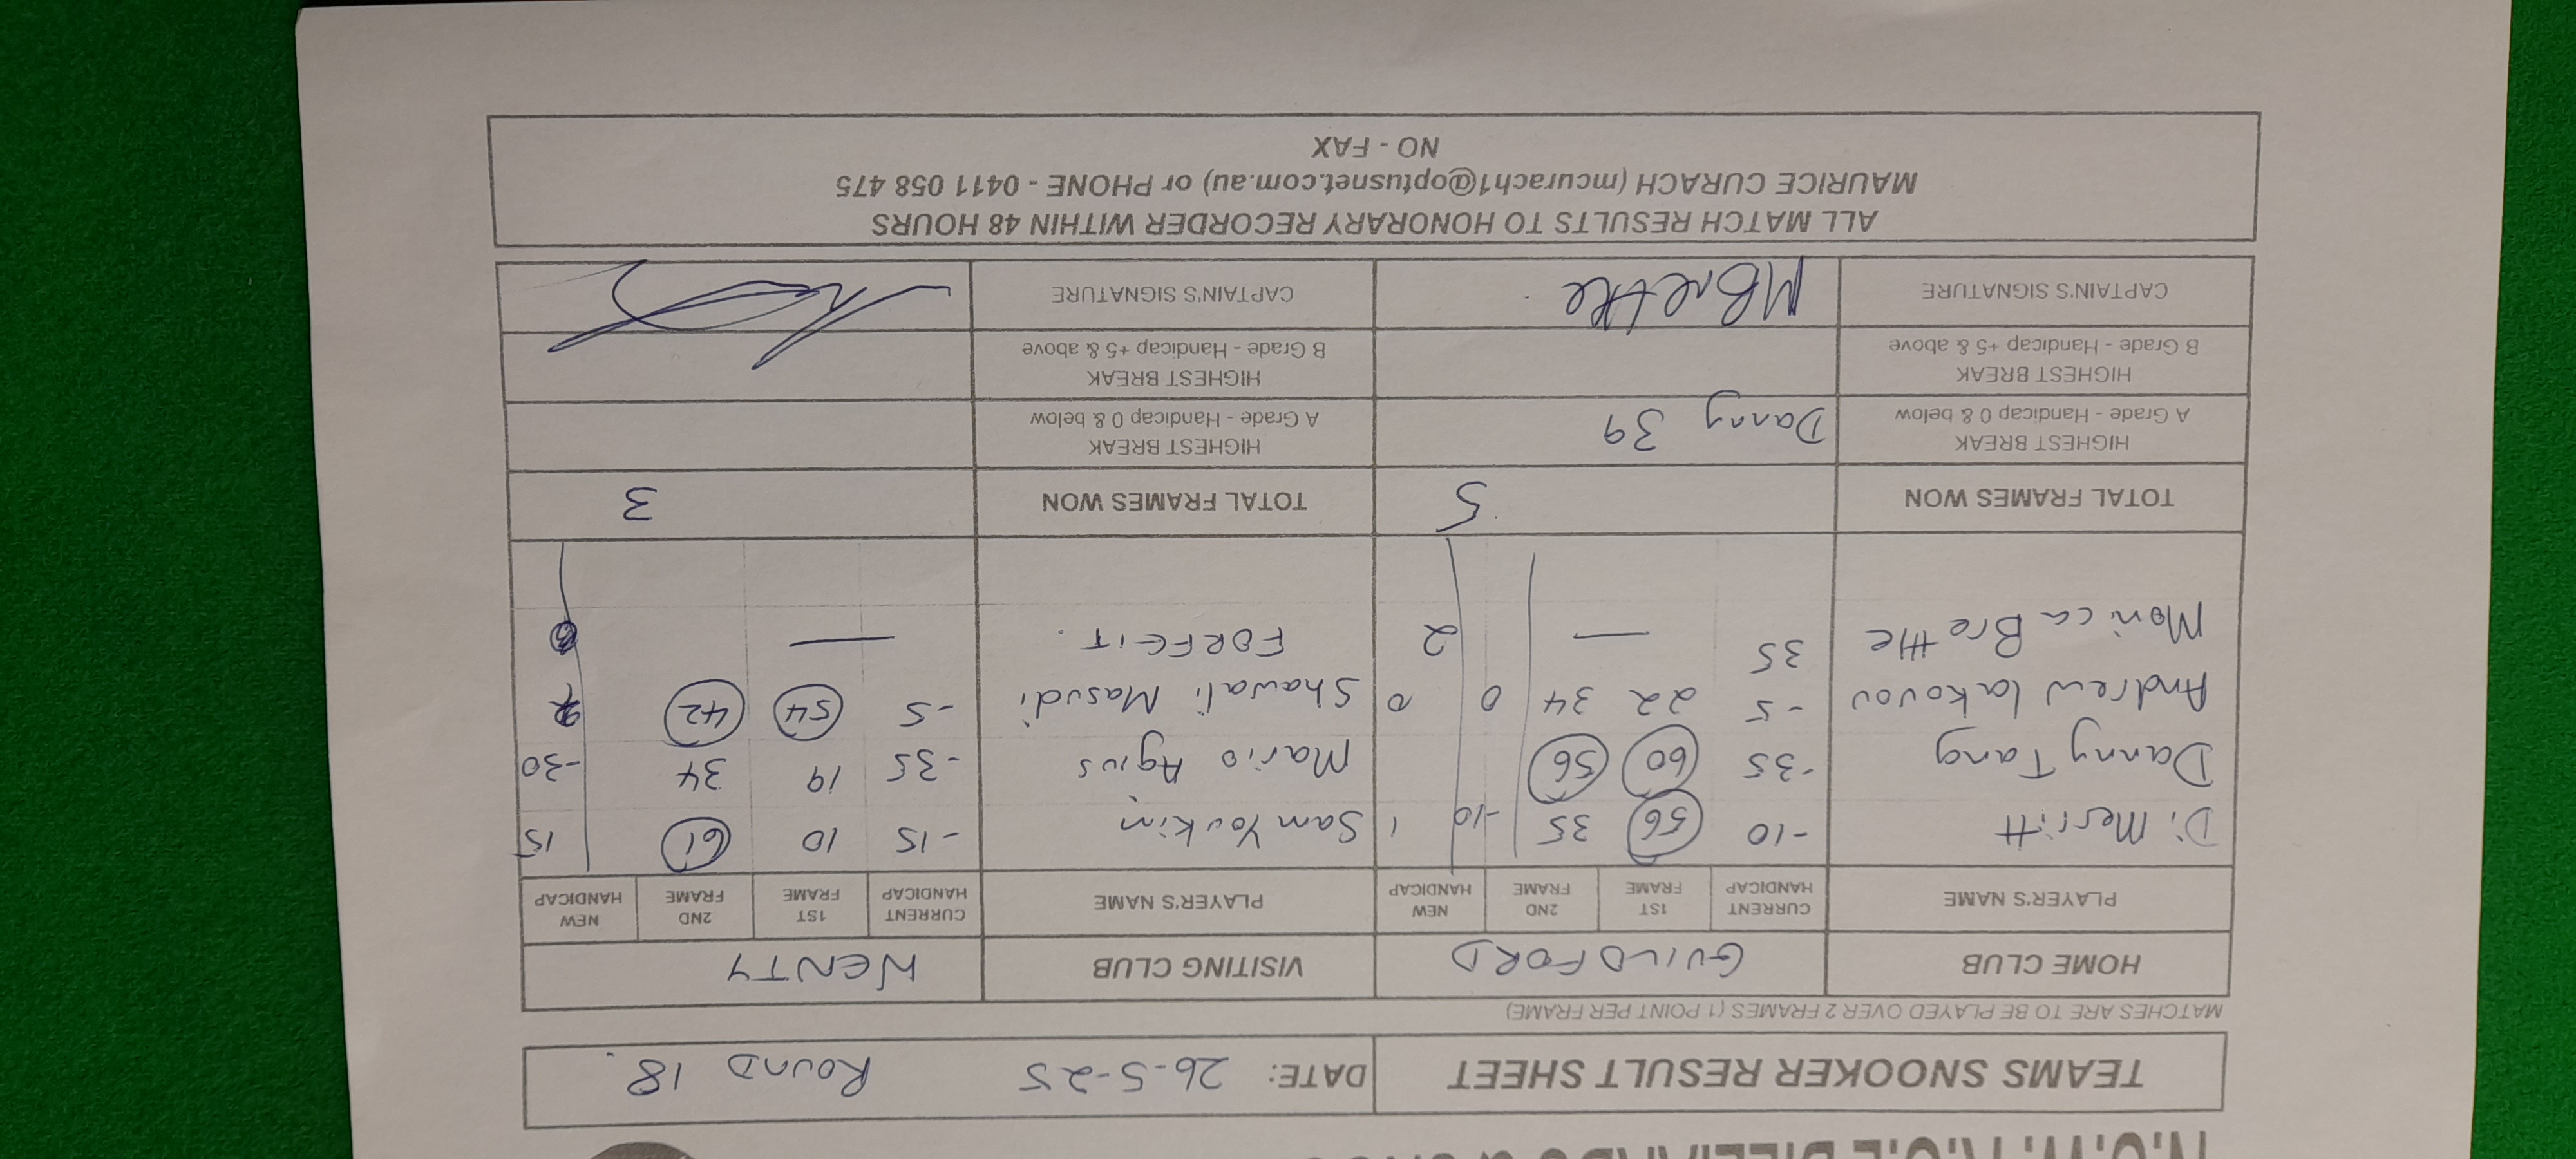 TEAMS SNOOKER RESULT SHEET DATE: 26-5-25 ROUND 18.
MATCHES ARE TO BE PLAYED OVER 2 FRAMES (1 POINT PER FRAME)
HOME CLUB GUILDFORD VISITING CLUB WENTY
PLAYER'S NAME CURRENT HANDICAP 1ST FRAME 2ND FRAME NEW HANDICAP PLAYER'S NAME CURRENT HANDICAP 1ST FRAME 2ND FRAME NEW HANDICAP
Di Merritt -10 56 35 -10 1 Sam Youkim -15 10 61 15
Danny Tang -35 60 56 Mario Agius -35 19 34 -30
Andrew Iakovou -5 22 34 0 0 Shawali Masudi -5 54 42
Monica Brettle 35 — 2 FORFEIT. —
TOTAL FRAMES WON 5 TOTAL FRAMES WON 3
HIGHEST BREAK
A Grade - Handicap 0 & below Danny 39
HIGHEST BREAK
A Grade - Handicap 0 & below
HIGHEST BREAK
B Grade - Handicap +5 & above
HIGHEST BREAK
B Grade - Handicap +5 & above
CAPTAIN'S SIGNATURE MBrettle CAPTAIN'S SIGNATURE
ALL MATCH RESULTS TO HONORARY RECORDER WITHIN 48 HOURS
MAURICE CURACH (mcurach1@optusnet.com.au) or PHONE - 0411 058 475
NO - FAX